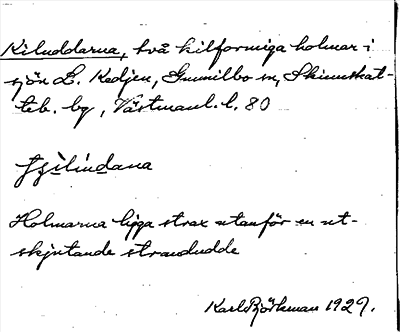 Kiluddarna, två kilformiga holmar i
sjön L. Kedjen, Gunnilbo sn, Skinnskat-
teb. bg, Västmanl. l. 80
Holmarna ligga strax utanför en ut-
skjutande strandudde
Karl Björkman 1927.